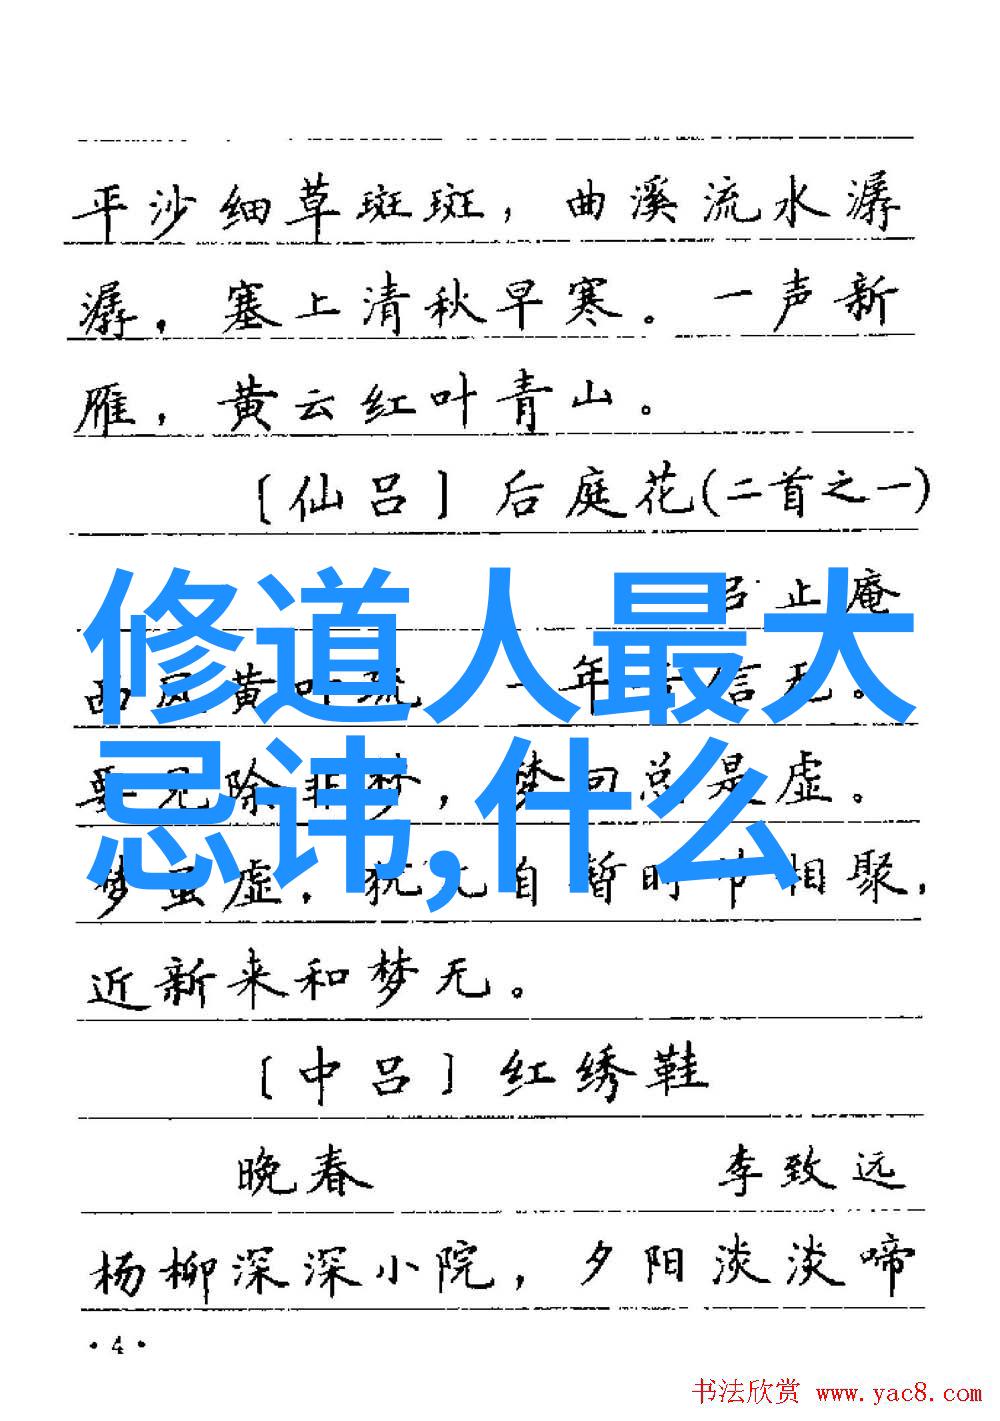 平沙细草斑斑，曲溪流水潺
潺，塞上清秋早寒。一声新
雁，黄云红叶青山。
〔仙吕〕后庭花(二首之一)
吕止庵
修道人最大
西风黄叶疏 一年音信无。
要见除非梦，梦回总是虚。
忌讳,什么
梦虽虚，犹兀自暂时节相聚，
近新来和梦无。
〔中吕〕红绣鞋
晚春 李致远
杨柳深深小院，夕阳淡淡啼
·4·
书法欣赏 www.yac8.com